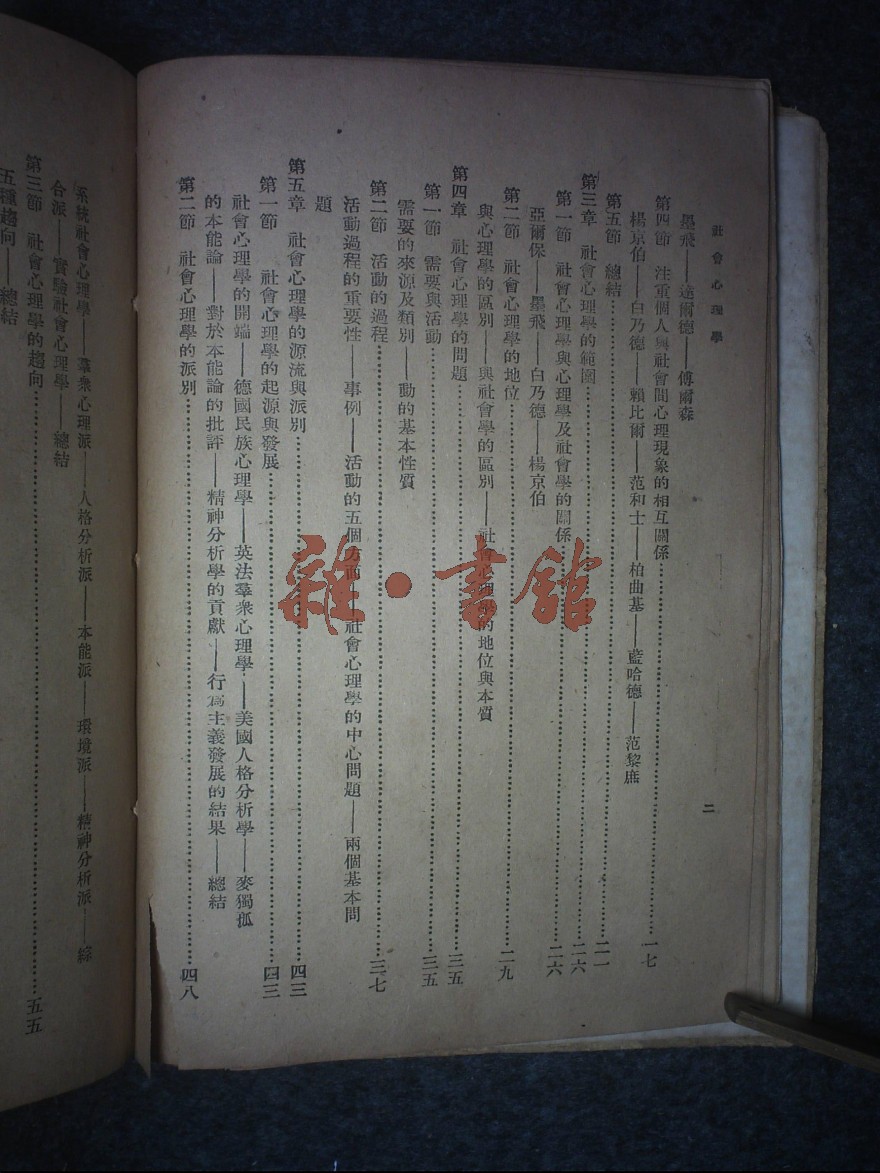 社會心理學
二
墨飛——達爾德——傅爾森
第四節 注重個人與社會間心理現象的相互關係……一七
楊京伯——白乃德——賴比爾——范和士——柏曲基——藍哈德——范黎庶
第五節 總結……二一
第三章 社會心理學的範圍……二六
第一節 社會心理學與心理學及社會學的關係……二六
亞爾保——墨飛——白乃德——楊京伯
第二節 社會心理學的地位……二九
與心理學的區別——與社會學的區別——社會心理學的地位與本質
第四章 社會心理學的問題……三五
第一節 需要與活動……三五
需要的來源及類別——動的基本性質
第二節 活動的過程……三七
活動過程的重要性——事例——活動的五個方面——社會心理學的中心問題——兩個基本問
題
第五章 社會心理學的源流與派別……四三
第一節 社會心理學的起源與發展……四三
社會心理學的開端——德國民族心理學——英法羣衆心理學——美國人格分析學——麥獨孤
的本能論——對於本能論的批評——精神分析學的貢獻——行爲主義發展的結果——總結
第二節 社會心理學的派別……四八
系統社會心理學——羣衆心理派——人格分析派——本能派——環境派——精神分析派——綜
合派——實驗社會心理學——總結
第三節 社會心理學的趨向……五五
五種趨向——總結
雜·書館